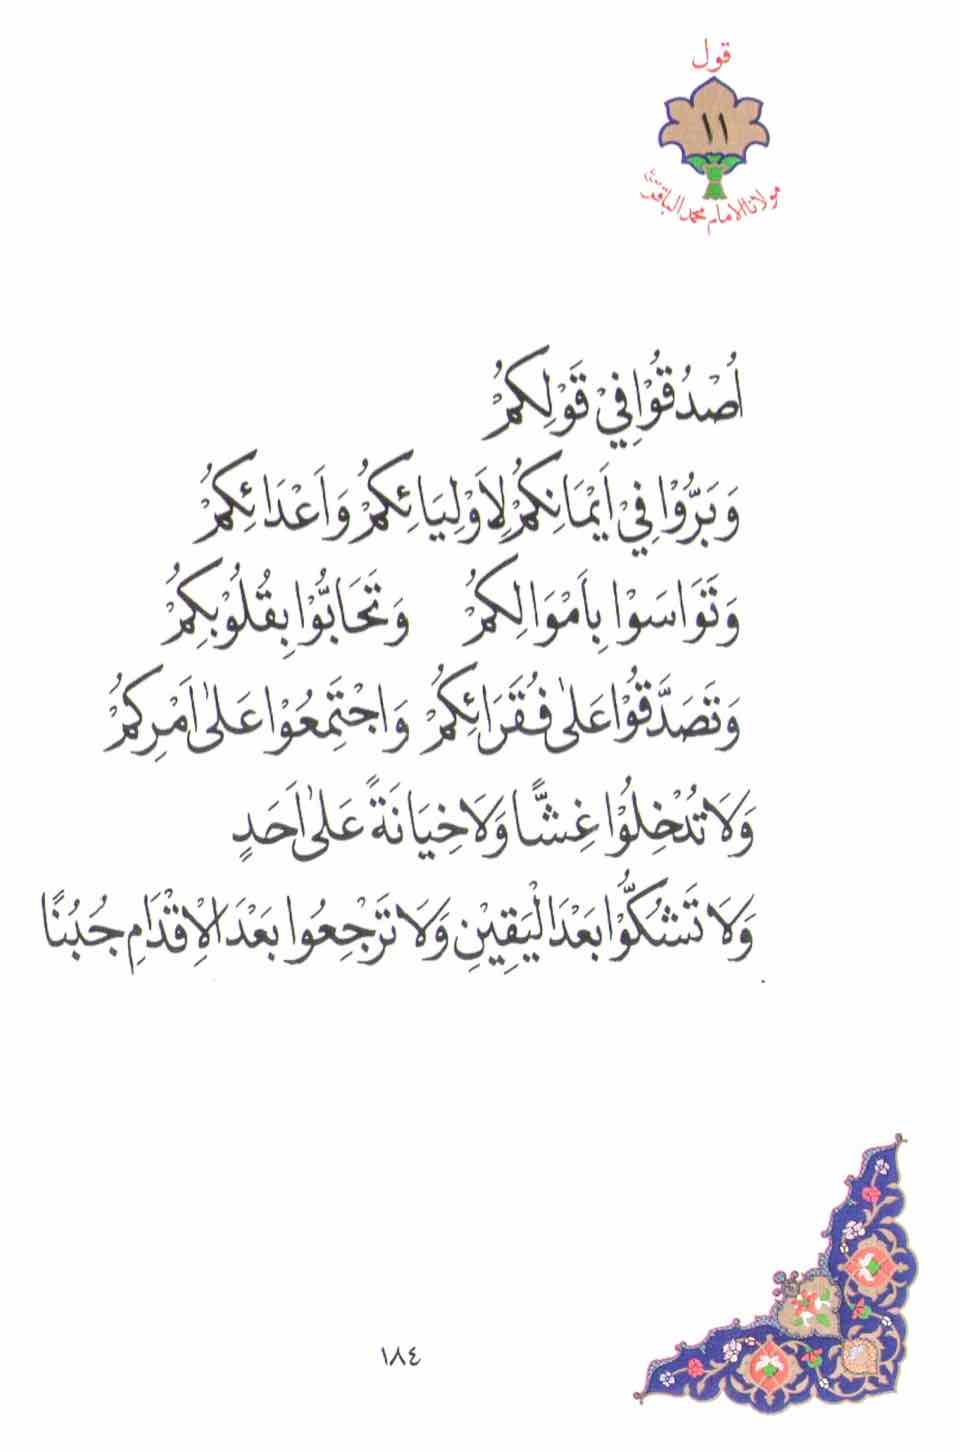 قول
١١
مولانا الامام محمد الباقر
اُصْدُقُوْا فِيْ قَوْلِكُمْ
وَبَرُّوْا فِيْ اَيْمَانِكُمْ لِاَوْلِيَائِكُمْ وَاَعْدَائِكُمْ
وَتَوَاسَوْا بِاَمْوَالِكُمْ وَتَحَابُّوْا بِقُلُوْبِكِمْ
وَتَصَدَّقُوْا عَلىٰ فُقَرَائِكُمْ وَاجْتَمِعُوْا عَلىٰ اَمْرِكُمْ
وَلَا تُدْخِلُوْا غِشًّا وَلَا خِيَانَةً عَلىٰ اَحَدٍ
وَلَا تَشُكُّوْا بَعْدَ الْيَقِيْنِ وَلَا تَرْجِعُوا بَعْدَ الْاِقْدَامِ جُبْنًا
١٨٤